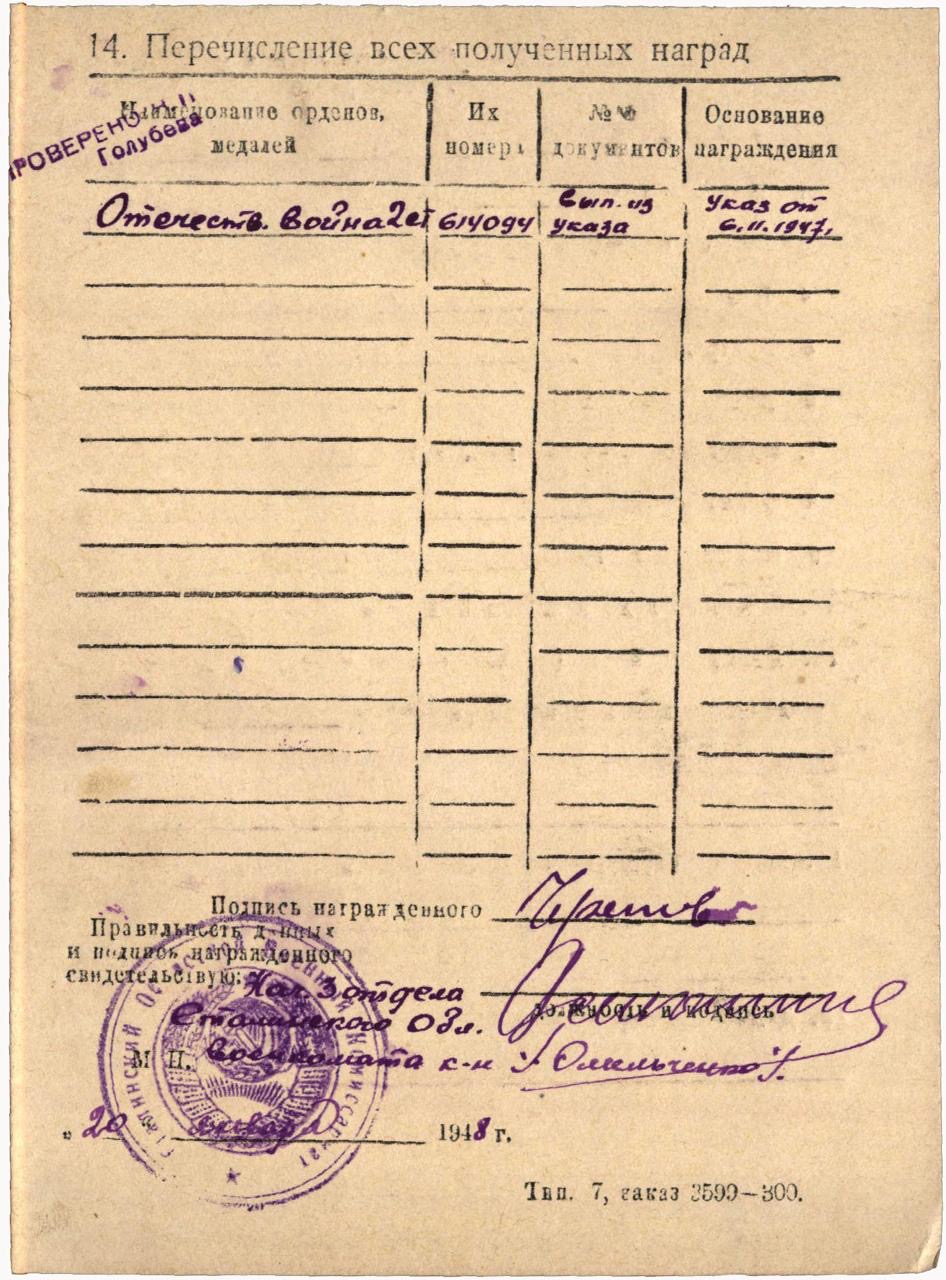 14. Перечисление всех полученных наград
ПРОВЕРЕНО
Голубева
Наименование орденов, медалей
Их номера
№№ документов
Основание награждения
Отечеств. война 2 ст
614094
Вып. из указа
Указ от 6.11.1947.
Подпись награжденного
Правильность данных
и подпись награжденного
свидетельствую:
Нач. 3 отдела
Сталинского Обл.
должность и подпись
М П. Военкомата к-н /Омельченко/.
Сталинский Областной Военный Комиссариат
„ 20 января 1948 г.
Тип. 7, заказ 3599—300.